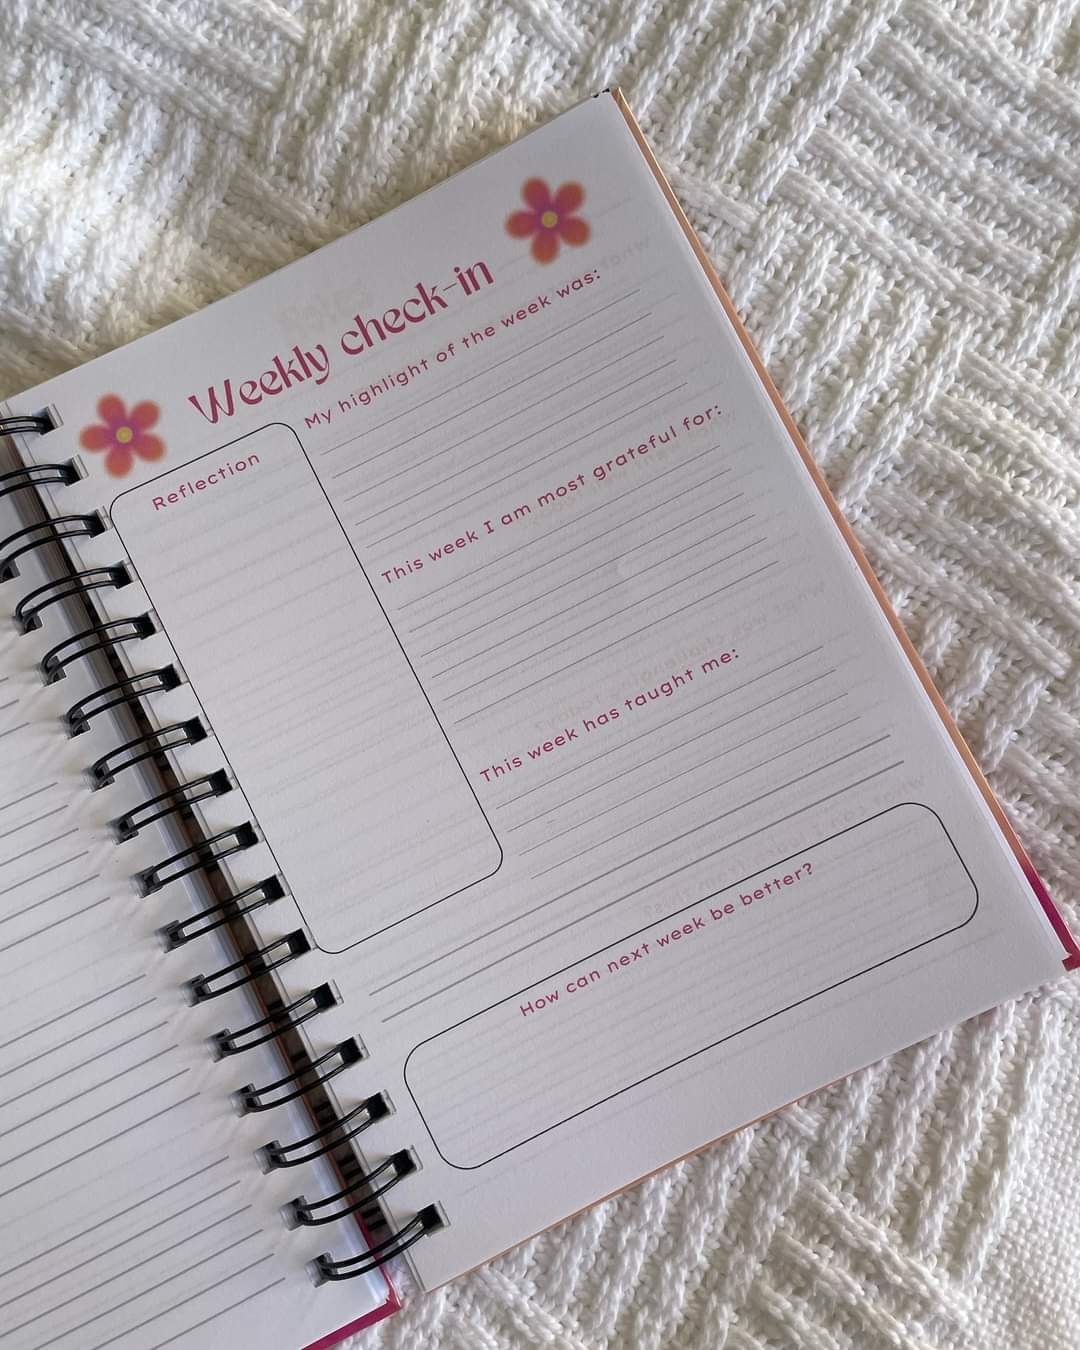 Weekly check-in
Reflection
My highlight of the week was:
This week I am most grateful for:
This week has taught me:
How can next week be better?